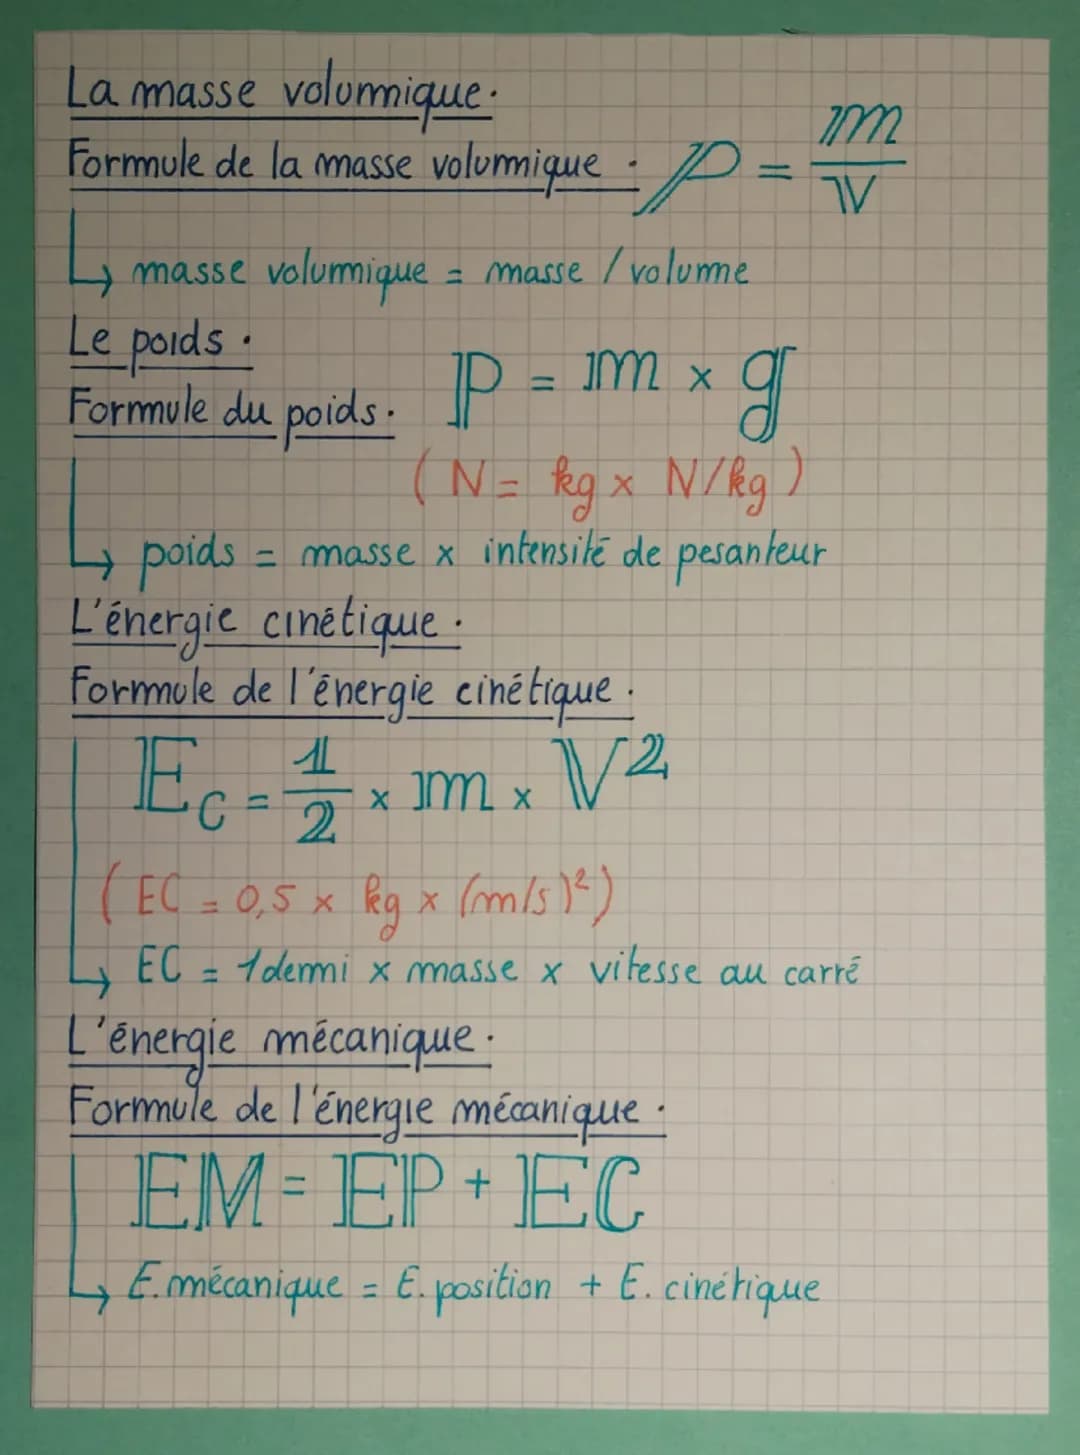 La masse volumique.
Formule de la masse volumique : ρ = m / V
↳ masse volumique = masse / volume
Le poids :
Formule du poids : P = m × g
( N = kg × N/kg )
↳ poids = masse × intensité de pesanteur
L'énergie cinétique :
Formule de l'énergie cinétique :
Ec = 1/2 × m × V²
( EC = 0,5 × kg × (m/s)² )
↳ EC = 1 demi × masse × vitesse au carré
L'énergie mécanique :
Formule de l'énergie mécanique :
EM = EP + EC
↳ E. mécanique = E. position + E. cinétique